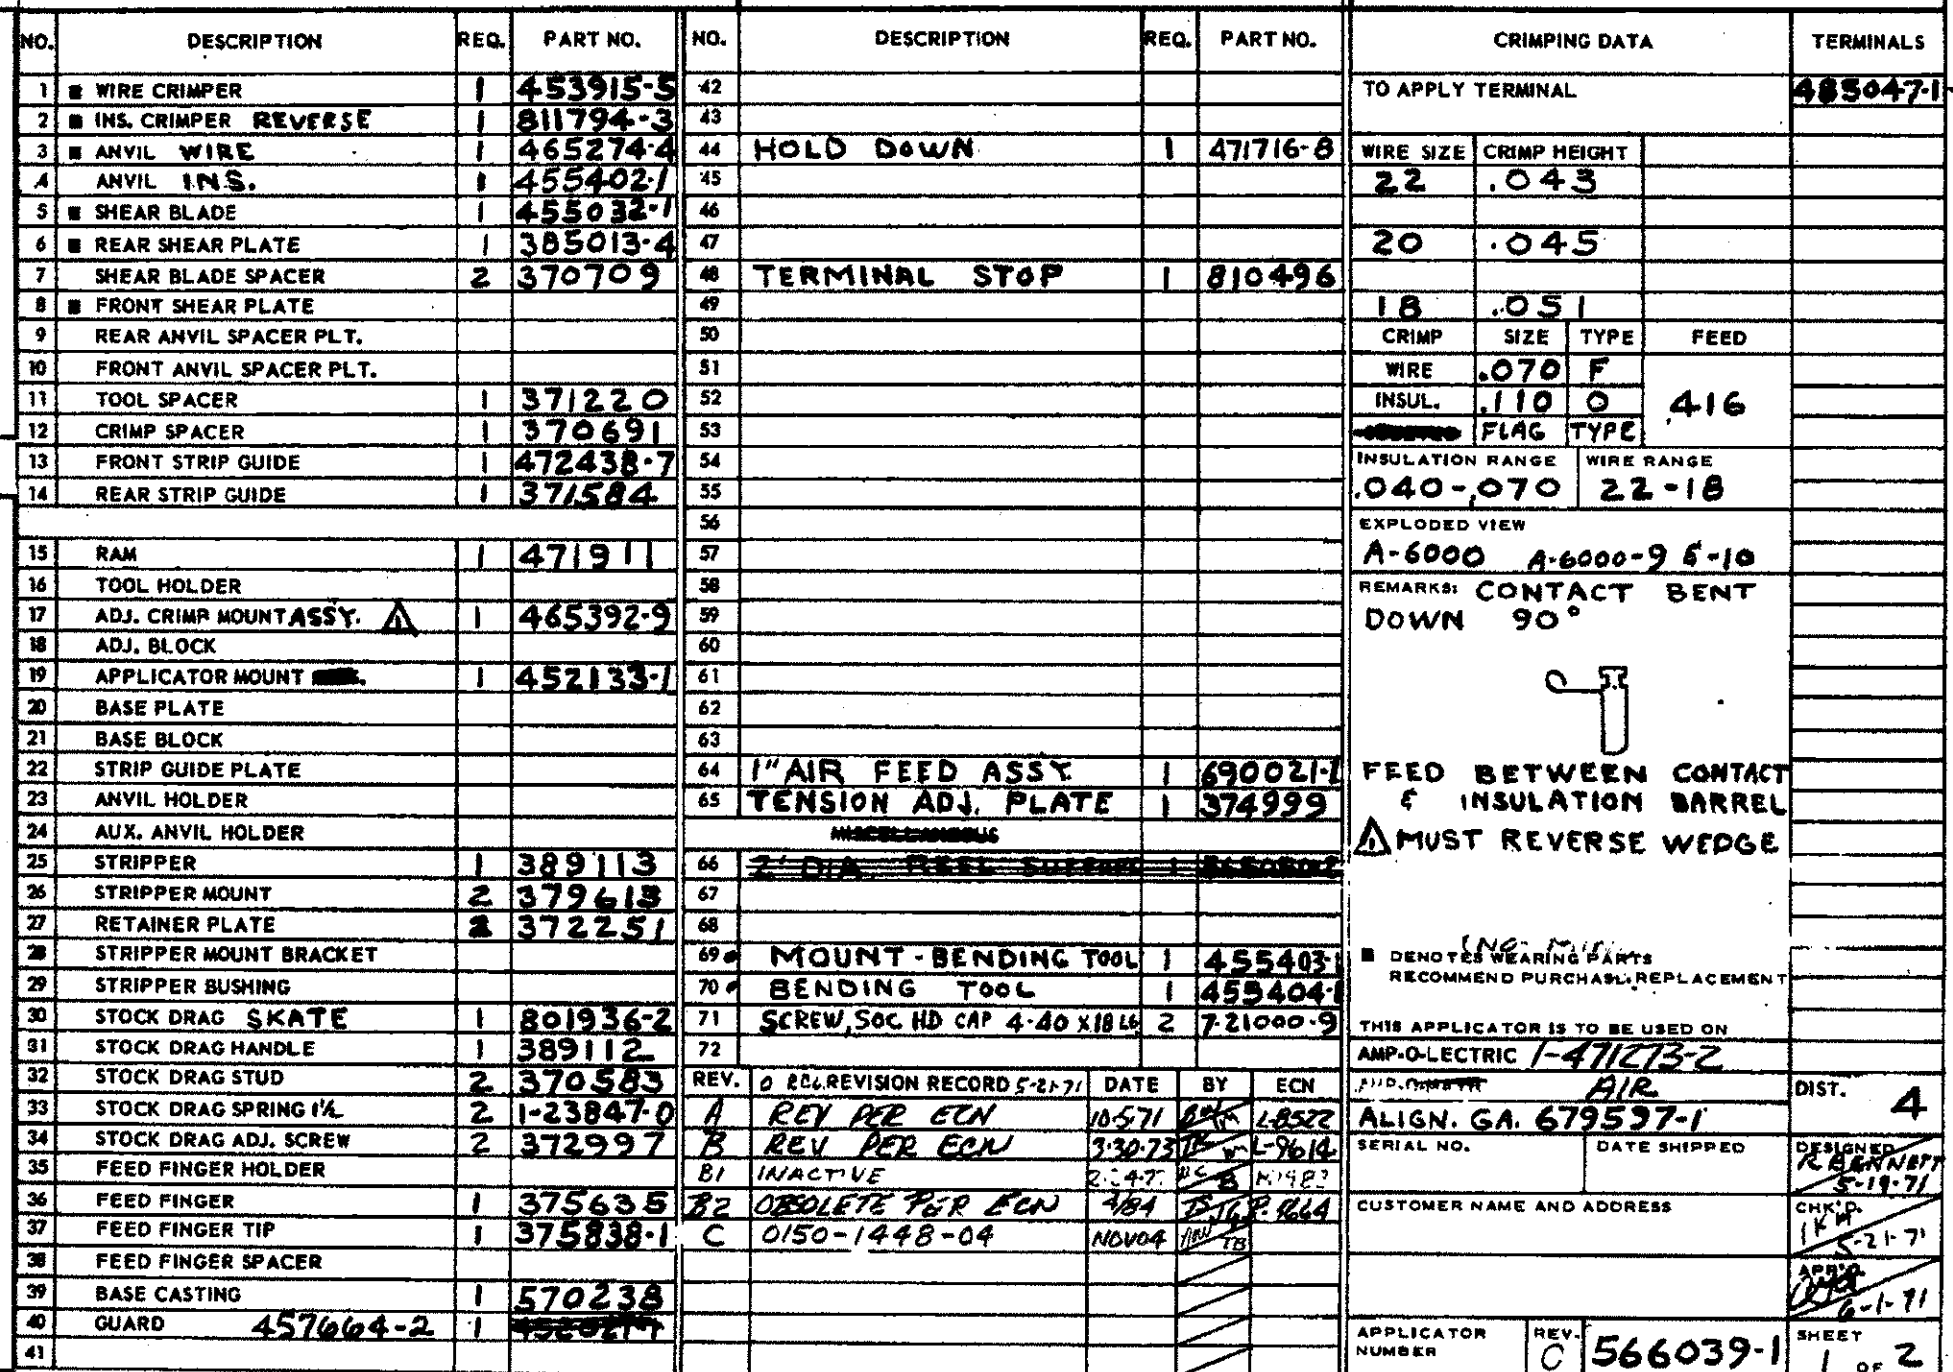 NO. DESCRIPTION REQ. PART NO.
1 ■ WIRE CRIMPER 1 453915-5
2 ■ INS. CRIMPER REVERSE 1 811794-3
3 ■ ANVIL WIRE 1 465274-4
4 ANVIL INS. 1 455402-1
5 ■ SHEAR BLADE 1 455032-1
6 ■ REAR SHEAR PLATE 1 385013-4
7 SHEAR BLADE SPACER 2 370709
8 ■ FRONT SHEAR PLATE
9 REAR ANVIL SPACER PLT.
10 FRONT ANVIL SPACER PLT.
11 TOOL SPACER 1 371220
12 CRIMP SPACER 1 370691
13 FRONT STRIP GUIDE 1 472438-7
14 REAR STRIP GUIDE 1 371584
15 RAM 1 471911
16 TOOL HOLDER
17 ADJ. CRIMP MOUNT ASSY. ⚠ 1 465392-9
18 ADJ. BLOCK
19 APPLICATOR MOUNT 1 452133-1
20 BASE PLATE
21 BASE BLOCK
22 STRIP GUIDE PLATE
23 ANVIL HOLDER
24 AUX. ANVIL HOLDER
25 STRIPPER 1 389113
26 STRIPPER MOUNT 2 379613
27 RETAINER PLATE 372251
28 STRIPPER MOUNT BRACKET
29 STRIPPER BUSHING
30 STOCK DRAG SKATE 1 801936-2
31 STOCK DRAG HANDLE 1 389112
32 STOCK DRAG STUD 2 370583
33 STOCK DRAG SPRING 1¼ 2 1-23847-0
34 STOCK DRAG ADJ. SCREW 2 372997
35 FEED FINGER HOLDER
36 FEED FINGER 1 375635
37 FEED FINGER TIP 1 375838-1
38 FEED FINGER SPACER
39 BASE CASTING 1 570238
40 GUARD 457664-2 1
41
NO. DESCRIPTION REQ. PART NO.
42
43
44 HOLD DOWN 1 471716-8
45
46
47
48 TERMINAL STOP 1 810496
49
50
51
52
53
54
55
56
57
58
59
60
61
62
63
64 1" AIR FEED ASSY. 1 690021-1
65 TENSION ADJ. PLATE 1 374999
MISCELLANEOUS
66 2' DIA. REEL SUPPORT 1
67
68
69 MOUNT-BENDING TOOL 1 455403-1
70 BENDING TOOL 1 455404-1
71 SCREW, SOC HD CAP 4-40 X 18 LG 2 7-21000-9
72
REV. REVISION RECORD 5-21-71 DATE BY ECN
A REV PER ECN 10-5-71 L-8522
B REV PER ECN 3-30-73 L-9614
B1 INACTIVE
B2 OBSOLETE PER ECN 4/84
C 0150-1448-04 NOV04 TB
CRIMPING DATA TERMINALS
TO APPLY TERMINAL 485047-1
WIRE SIZE CRIMP HEIGHT
22 .043
20 .045
18 .051
CRIMP SIZE TYPE FEED
WIRE .070 F
INSUL. .110 O .416
FLAG TYPE
INSULATION RANGE WIRE RANGE
.040-.070 22-18
EXPLODED VIEW
A-6000 A-6000-9 & -10
REMARKS: CONTACT BENT
DOWN 90°
FEED BETWEEN CONTACT
& INSULATION BARREL
⚠ MUST REVERSE WEDGE
■ DENOTES WEARING PARTS
RECOMMEND PURCHASE REPLACEMENT
THIS APPLICATOR IS TO BE USED ON
AMP-O-LECTRIC 1-471273-2
AIR
ALIGN. GA. 679597-1
DIST. 4
SERIAL NO. DATE SHIPPED
DESIGNED R BENNETT 5-19-71
CUSTOMER NAME AND ADDRESS
CHK'D. 5-21-71
APR'D. 6-1-71
APPLICATOR NUMBER REV. C 566039-1
SHEET 1 OF 2